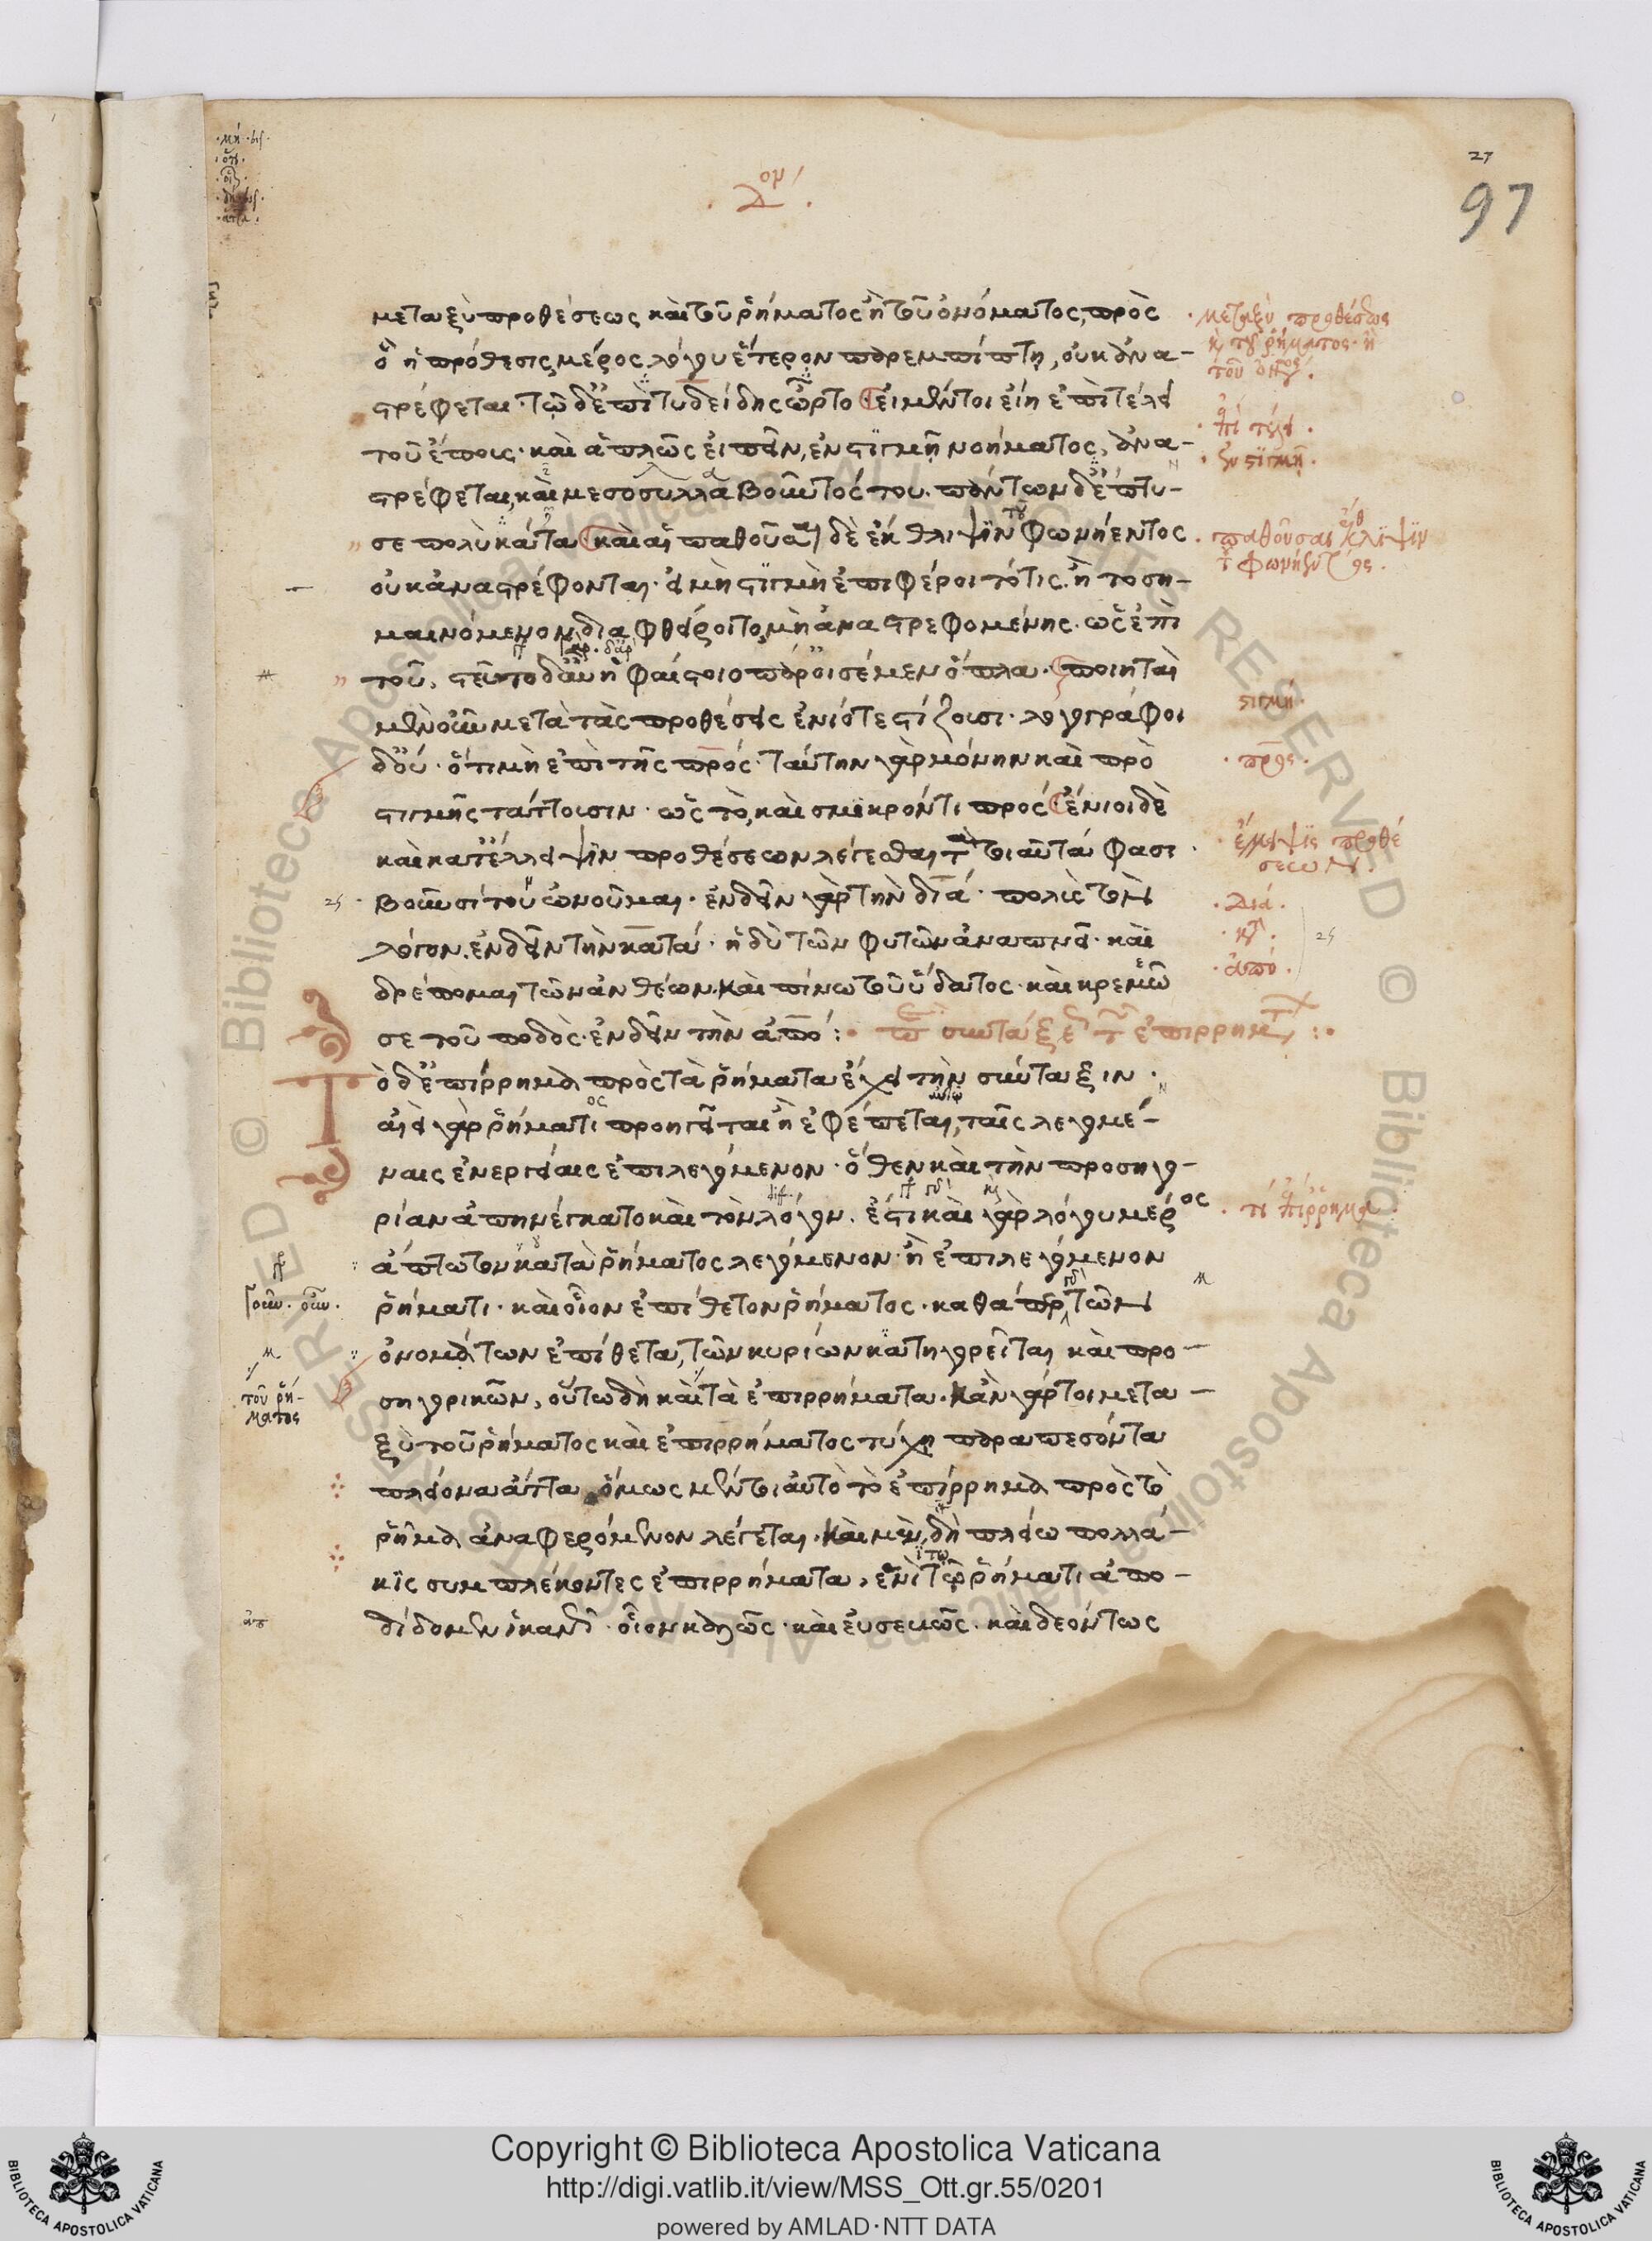 27
97
μεταξὺ προθέσεως καὶ τοῦ ῥήματος ἢ τοῦ ὀνόματος, πρὸς
ὃ ἡ πρόθεσις, μέρος λόγου ἕτερον παρεμπίπτῃ, οὐκ ἀνα-
στρέφεται· τῷ δ' ἐπὶ τυδείδης ὦρτο εἰ μέντοι εἴη ἐπὶ τέλει
τοῦ ἔπους· καὶ ἁπλῶς εἰπεῖν, ἐν στιγμῇ νοήματος, ἀνα-
στρέφεται, καὶ μεσοσυλλαβοῦντός του. πάντων δὲ
σε πολὺ κάτα καὶ αἱ παθοῦσαι δὲ ἔκθλιψιν φωνήεντος
οὐκ ἀναστρέφονται· εἰ μὴ στιγμὴ ἐπιφέροιτό τις. ἢ τὸ ση-
μαινόμενον διαφθείροιτο, μὴ ἀναστρεφομένης. ὡς ἐπὶ
τοῦ, ἡφαίστοιο πάρ' οἰσέμεν ὅπλα. ποιηταὶ
μὲν οὖν μετὰ τὰς προθέσεις ἐνίοτε στίζουσι· λογογράφοι
δ' οὔ· ὅτι μὴ ἐπὶ τῆς πρός· ταύτην γὰρ μόνην καὶ πρὸ
στιγμῆς τάττουσιν· ὡς τὸ, καὶ σμικρόν τι πρός ἔνιοι δὲ
καὶ κατ' ἔλλειψιν προθέσεων λέγεσθαι τὰ τοιαῦτά φασι·
ὠνοῦμαι· ἐνδεῖν γὰρ τὴν διά·
λόγον. ἐνδεῖν τὴν κατά· ἡδὺ τῶν φυτῶν ἀναπνεῖ· καὶ
δρέπομαι τῶν ἀνθέων. καὶ πίνω τοῦ ὕδατος· καὶ κρεμῶ
σε τοῦ ποδός· ἐνδεῖν τὴν ἀπό:
ὁ δ' ἐπίρρημα πρὸς τὰ ῥήματα ἔχει τὴν σύνταξιν·
ἀεὶ γὰρ ῥήματι προηγεῖται ἢ ἐφέπεται, ταῖς λεγομέ-
ναις ἐνεργείαις ἐπιλεγόμενον· ὅθεν καὶ τὴν προσηγο-
ρίαν ἀπηνέγκατο καὶ τὸν λόγον. ἔστι καὶ γὰρ λόγου μέρος
ἄπτωτον κατὰ ῥήματος λεγόμενον· ἢ ἐπιλεγόμενον
ῥήματι· καὶ οἷον ἐπίθετον ῥήματος· καθάπερ τῶν
ὀνομάτων ἐπίθετα, τῶν κυρίων κατηγορεῖται καὶ προ-
σηγορικῶν, οὕτω δὴ καὶ τὰ ἐπιρρήματα. κἂν γάρ τοι μετα-
ξὺ τοῦ ῥήματος καὶ ἐπιρρήματος τύχῃ παραπεσόντα
πλείονα ἄττα ὅμως μέντοι αὐτὸ τὸ ἐπίρρημα πρὸς τὸ
ῥῆμα ἀναφερόμενον λέγεται. καὶ μὲν δὴ πλείω πολλά-
κις συμπλέκοντες ἐπιρρήματα, ἑνὶ τῷ ῥήματι ἀπο-
δίδομεν οἷον καλῶς· καὶ εὐσεβῶς· καὶ δεόντως
μεταξὺ προθέσεως
καὶ τοῦ ῥήματος· ἢ
τοῦ
ἐπὶ τέλει.
ἐν στιγμῇ.
παθοῦσαι ἔκθλιψιν
φωνήεντος.
στιγμή.
πρός.
ἔλλειψις προθέ
σεων
διά.
ἀπό.
τί ἐπίρρημα
τοῦ ῥή-
ματος
Copyright © Biblioteca Apostolica Vaticana
http://digi.vatlib.it/view/MSS_Ott.gr.55/0201
powered by AMLAD·NTT DATA
BIBLIOTECA APOSTOLICA VATICANA
BIBLIOTECA APOSTOLICA VATICANA